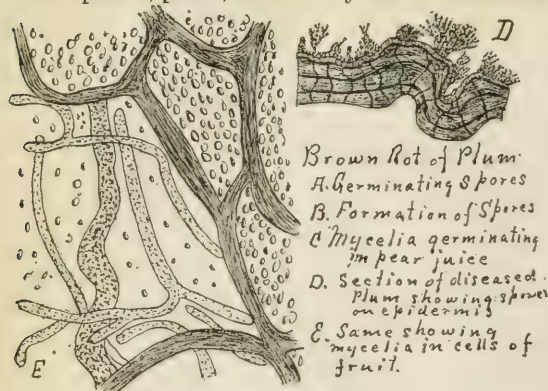 D
Brown Rot of Plum.
A. Germinating Spores
B. Formation of Spores
C Mycelia germinating
in pear juice
D. Section of diseased
Plum showing spores
on epidermis
E. Same showing
mycelia in cells of
fruit.
E